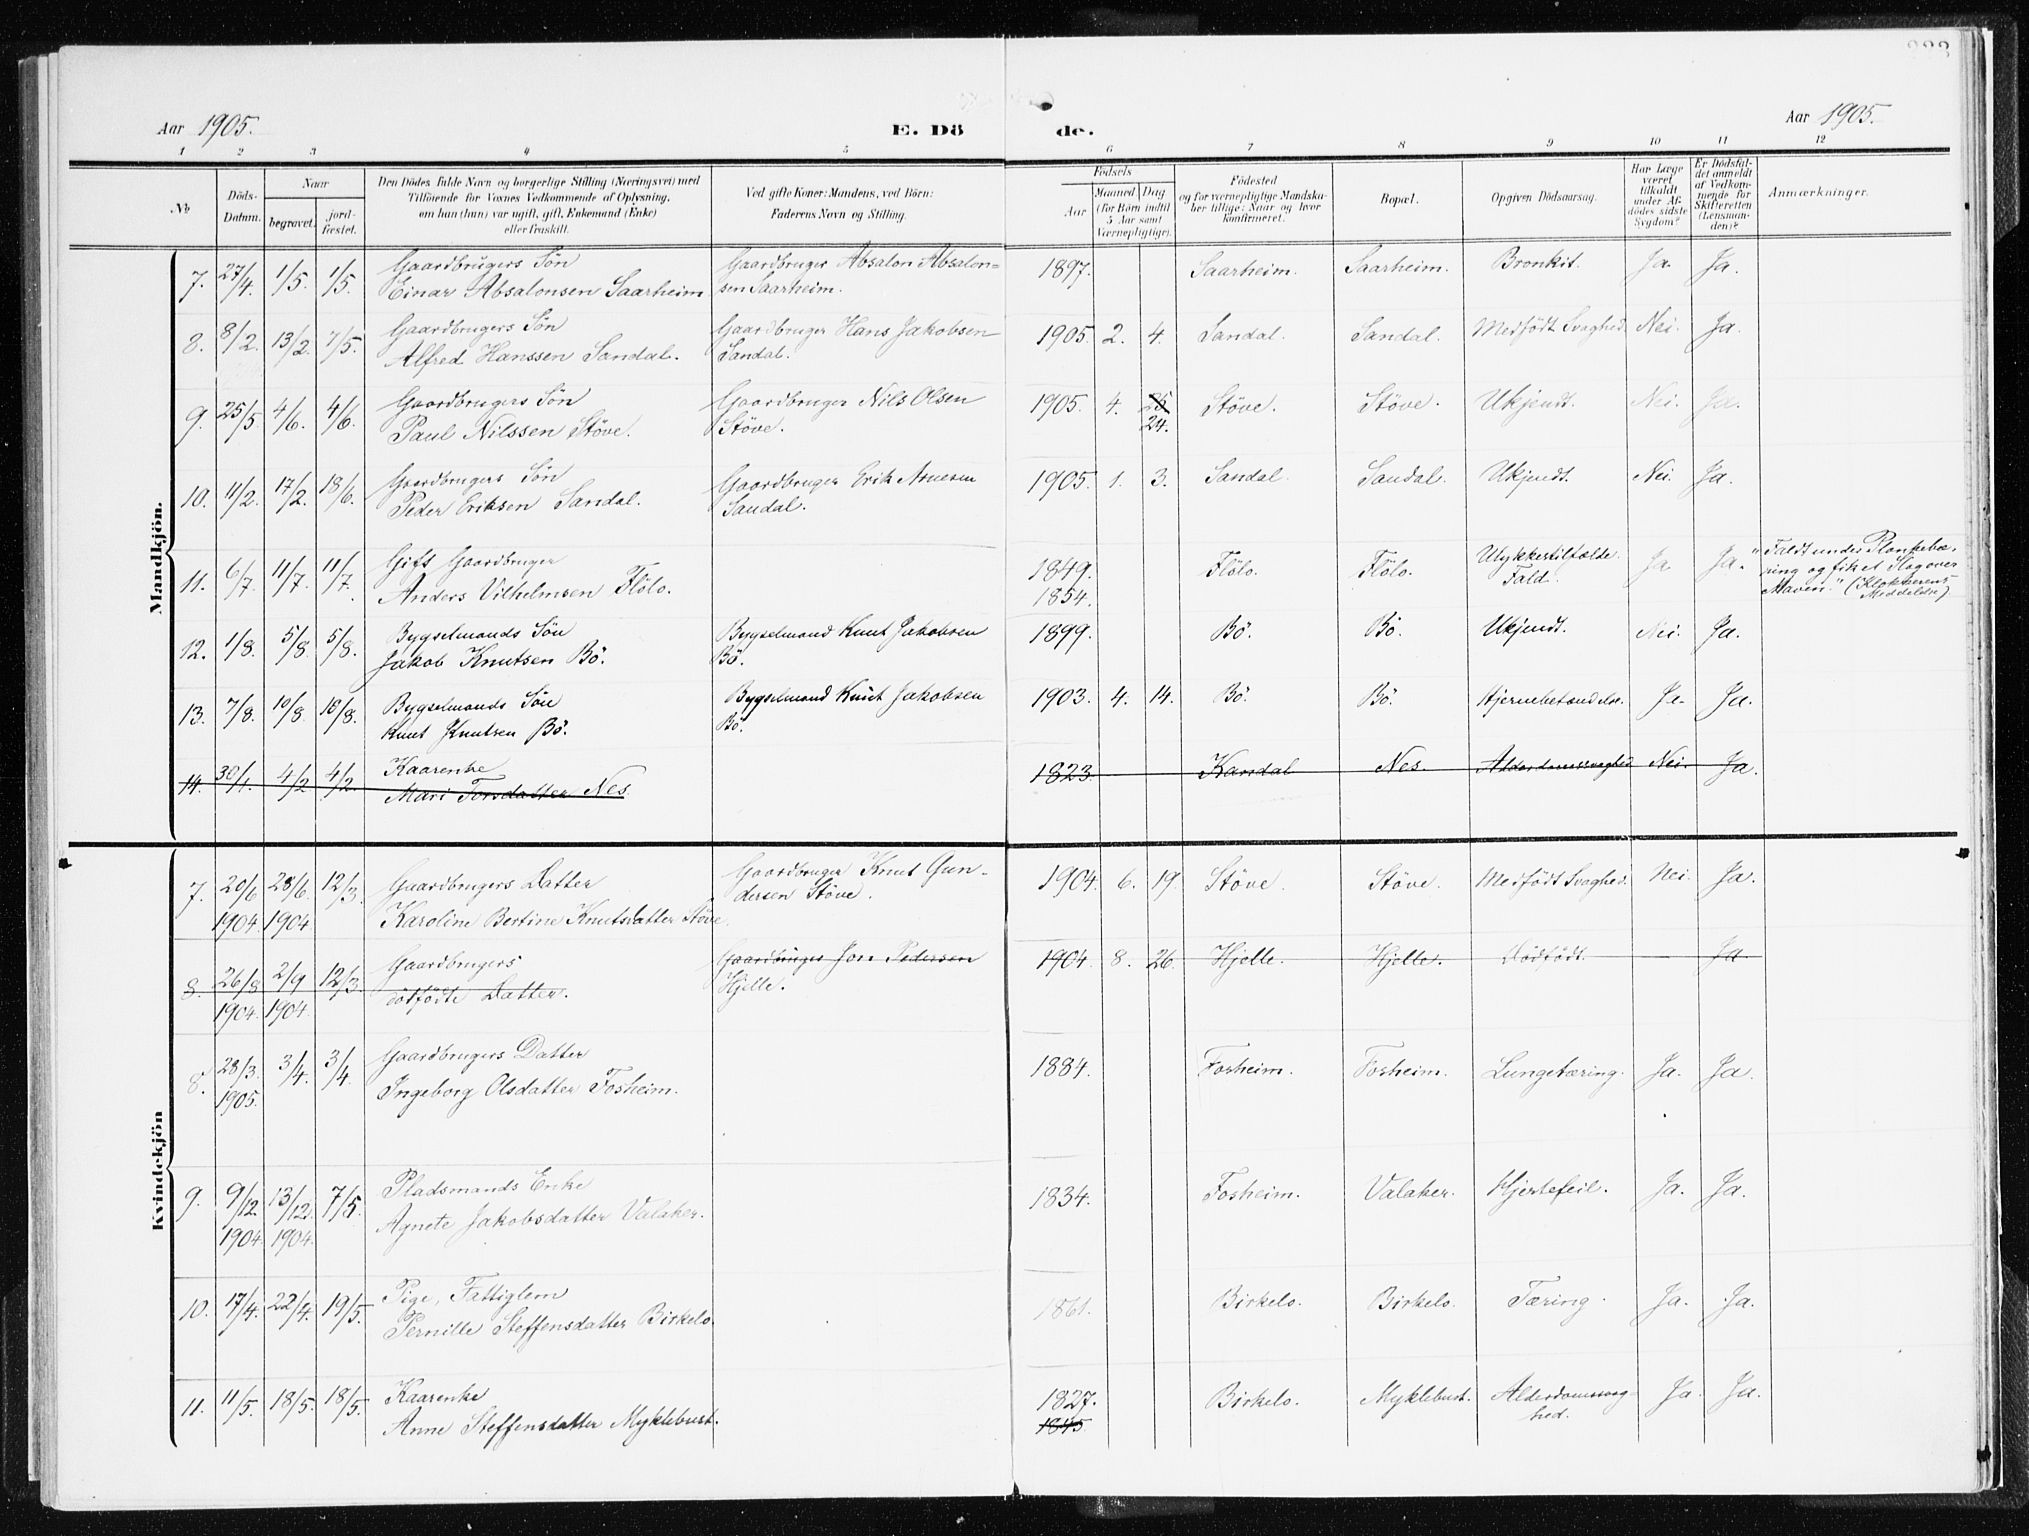 Aar 1905.
E. Dö de.
Aar 1905.
1 2 3 4 5 6 7 8 9 10 11 12
No
Döds-Datum.
Naar
begravet.
jord-fæstet.
Den Dödes fulde Navn og borgerlige Stilling (Næringsvei) med
Tilföiende for Voxnes Vedkommende af Oplysning,
om han (hun) var ugift, gift, Enkemand (Enke)
eller fraskilt.
Ved gifte Koner: Mandens, ved Börn:
Faderens Navn og Stilling.
Födsels
Aar
Maaned Dag
(for Börn indtil
5 Aar samt
Værnepligtige).
Födested
og for værnepligtige Mandska-
ber tillige: Naar og hvor
konfirmeret.
Bopæl.
Opgiven Dödsaarsag.
Har Læge
været
tilkaldt
under Af-
dödes sidste
Sygdom?
Er Dödsfal-
det anmeldt
af Vedkom-
mende for
Skifteretten
(Lensman-
den)?
Anmærkninger.
Mandkjön.
7. 27/4 1/5 1/5. Gaardbrugers Sön Gaardbruger Absalon Absalon= 1897. Saarheim. Saarheim. Bronkit. Ja. Ja.
Einar Absalonsen Saarheim sen Saarheim.
8. 8/2. 13/2 7/5. Gaardbrugers Sön Gaardbruger Hans Jakobsen 1905. 2. 4. Sandal. Sandal. Medfödt Svaghed. Nei. Ja.
Alfred Hanssen Sandal. Sandal.
9. 25/5 4/6. 4/6. Gaardbrugers Sön Gaardbruger Nils Olsen 1905. 4. 25 Stöve. Stöve. Ukjendt. Nei. Ja.
Paul Nilssen Stöve. Stöve. 24.
10. 11/2. 17/2. 18/6. Gaardbrugers Sön Gaardbruger Erik Arnesen 1905. 1. 3. Sandal. Sandal. Ukjendt. Nei. Ja.
Peder Eriksen Sandal. Sandal.
11. 6/7. 11/7. 11/7. Gift Gaardbruger 1849. Flölo. Flölo. Ulykkestilfælde. Ja Ja. "Faldt under Plankebæ-
Anders Vilhelmsen Flölo. 1854. Fald. ring og fik et Slag over
Maven." (Klokkerens
Meddelelse)
12. 1/8. 5/8. 5/8. Bygselmands Sön Bygselmand Knut Jakobsen 1899. Bö. Bö. Ukjendt. Nei. Ja.
Jakob Knutsen Bö. Bö.
13. 7/8. 10/8. 10/8. Bygselmands Sön Bygselmand Knut Jakobsen 1903. 4. 14. Bö. Bö. Hjernebetændelse. Ja. Ja.
Knut Knutsen Bö. Bö.
14. 30/1. 4/2 4/2. Kaarenke 1823. Kandal Nes. Alderdomssvaghed Nei. Ja.
Mari Torsdatter Nes.
Kvindekjön
7. 20/6 28/6. 12/3. Gaardbrugers Datter Gaardbruger Knut Gun- 1904. 6. 19. Stöve. Stöve. Medfödt Svaghed. Nei. Ja.
1904. 1904 Karoline Bertine Knutsdatter Stöve. dersen Stöve.
8. 26/8 2/9 12/3. Gaardbrugers Gaardbruger Jon Pedersen 1904. 8. 26. Hjelle. Hjelle. Dödfödt. Ja
1904. 1904. dödfödte Datter. Hjelle.
8. 28/3. 3/4. 3/4 Gaardbrugers Datter 1884. Fosheim. Fosheim. Lungetæring. Ja. Ja.
1905. Ingeborg Olsdatter Fosheim.
9. 9/12. 13/12. 7/5. Pladsmands Enke 1834. Fosheim. Valaker. Hjertefeil. Ja. Ja.
1904. 1904. Agnete Jakobsdatter Valaker.
10. 17/4. 22/4. 19/5. Pige, Fattiglem 1861. Birkelo. Birkelo. Tæring. Ja. Ja.
Pernille Steffensdatter Birkelo.
11. 11/5. 18/5. 18/5. Kaarenke 1827. Birkelo. Myklebust. Alderdomssvag- Ja. Ja.
Anne Steffensdatter Myklebust. 1845 hed.